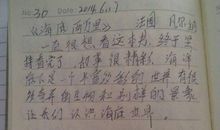 NO:30 2014.6.17
《海底两万里》 法国 凡尔纳
一直很想看这本书,终于坚
持看完了,故事很精彩,海洋
底下是一个丰富多彩的世界,有很
多奇异的生物和别样的景象
让我们认识海底世界。